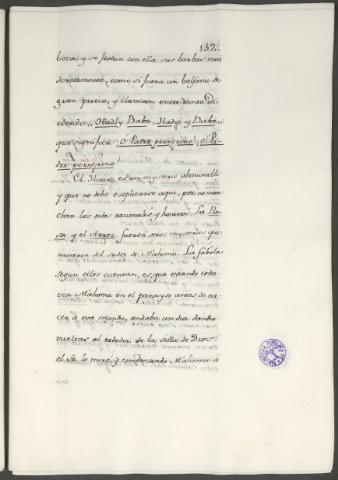 152.
bocas, y se frotan con ella sus barbas mui
devotamente, como si fuera un balsamo de
gran precio, y claman enteramente De
cediendo, Hadgi Baba, Hadgi y Baba,
que significa, O Padre peregrino, o Pa
dre peregrino.
El es un mysterio abominable
y que no debe esplicarse aqui, por no man
char los oidos racionales y honrosos. La Ro
sa y el Arroz fueron otros mysterios que
nacieron del sudor de Mahoma. La fabula
segun ellos cuentan, es, que estando toda
via Mahoma en el parayso antes de na
cer a este mundo, andaba un dia dando
vueltas al rededor de la silla de Dios:
el Sr. lo miro, y comenzando Mahoma à